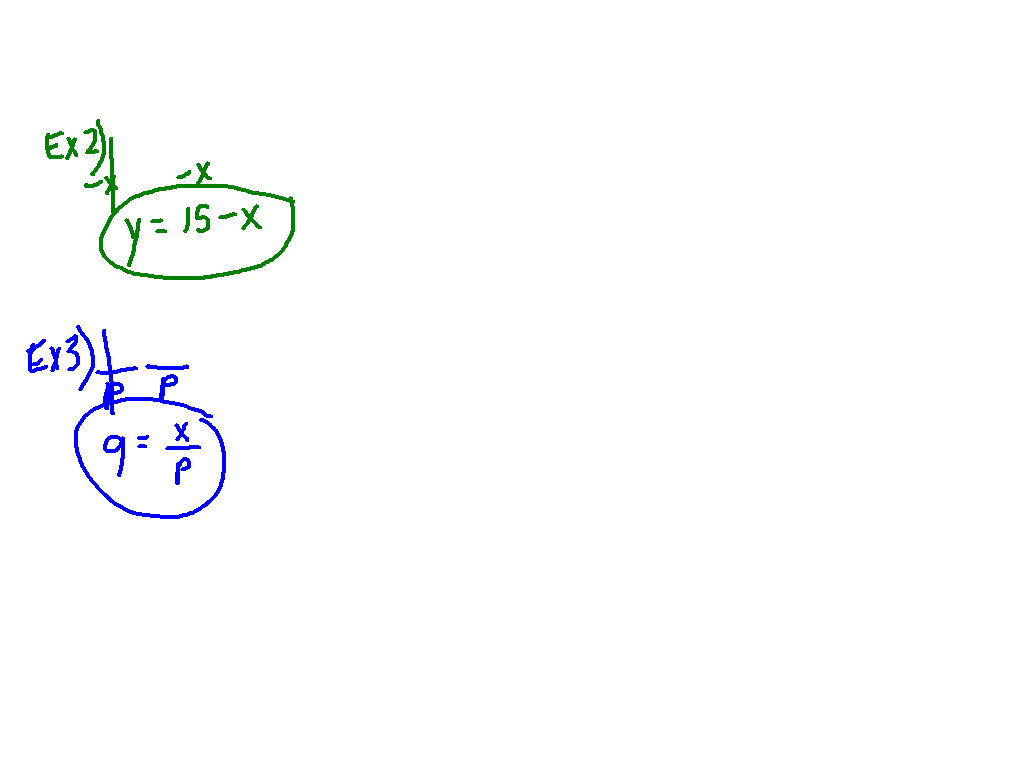 Ex2)
-x -x
y = 15 - x
Ex3)
p p
q = x/p